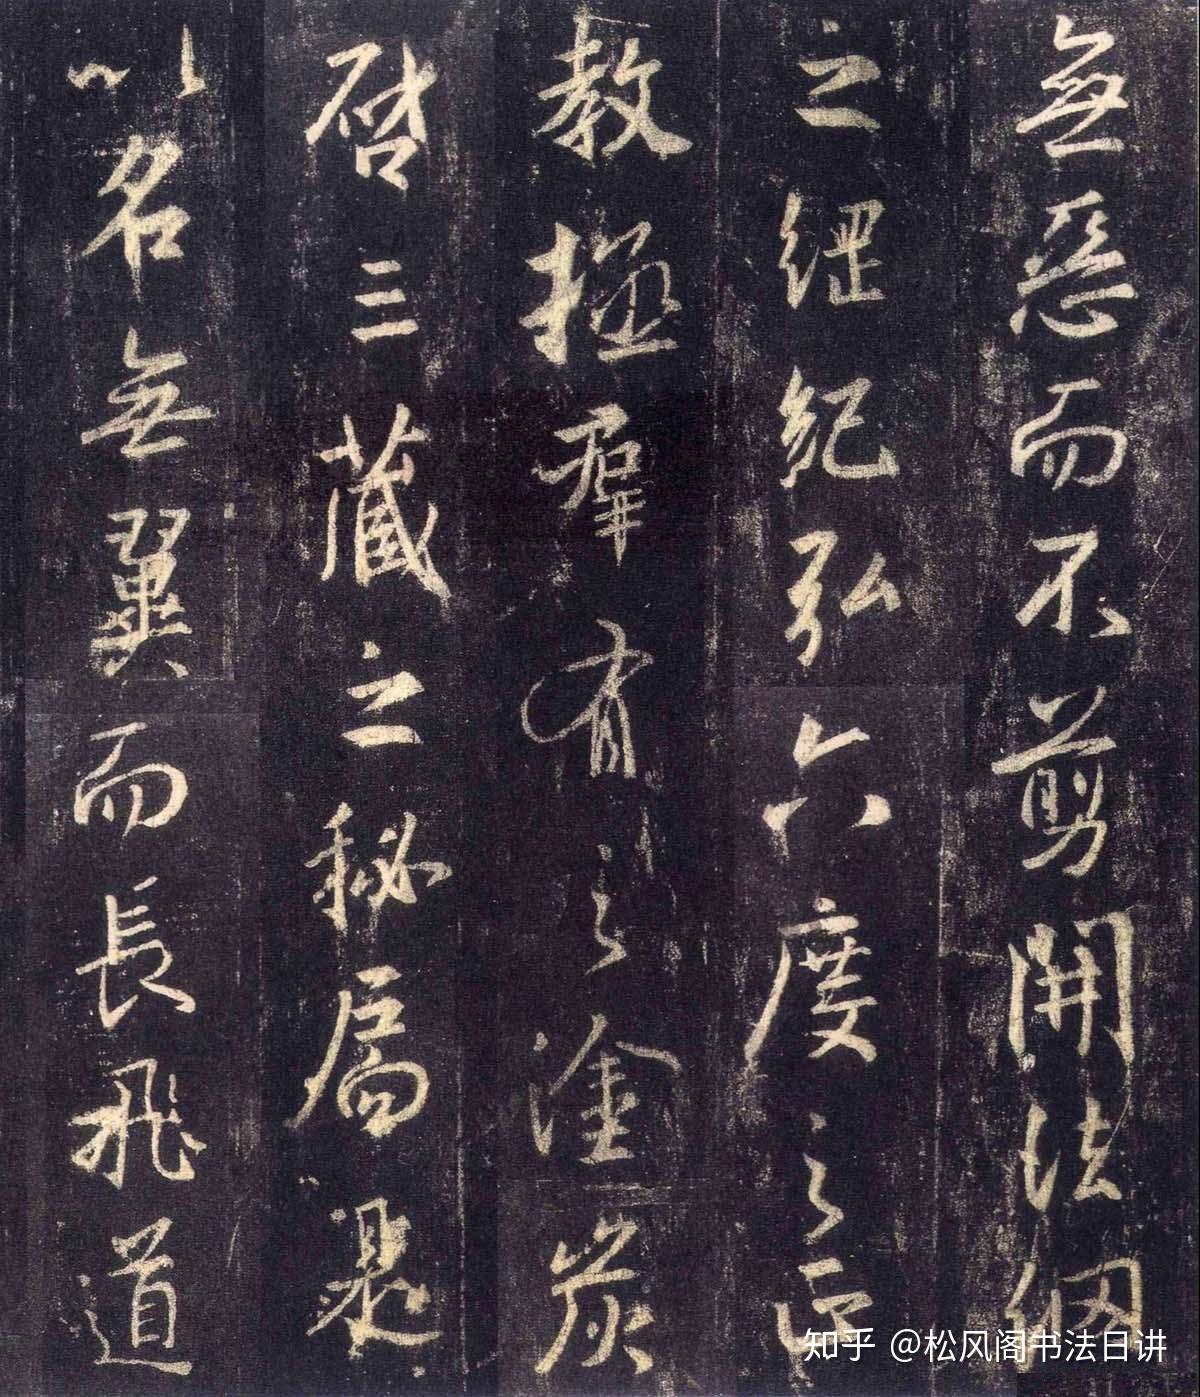 無惡而不剪開法網
之綱紀弘六度之正
教拯羣有之塗炭
啓三藏之秘扃是
以名無翼而長飛道
知乎 @松风阁书法日讲